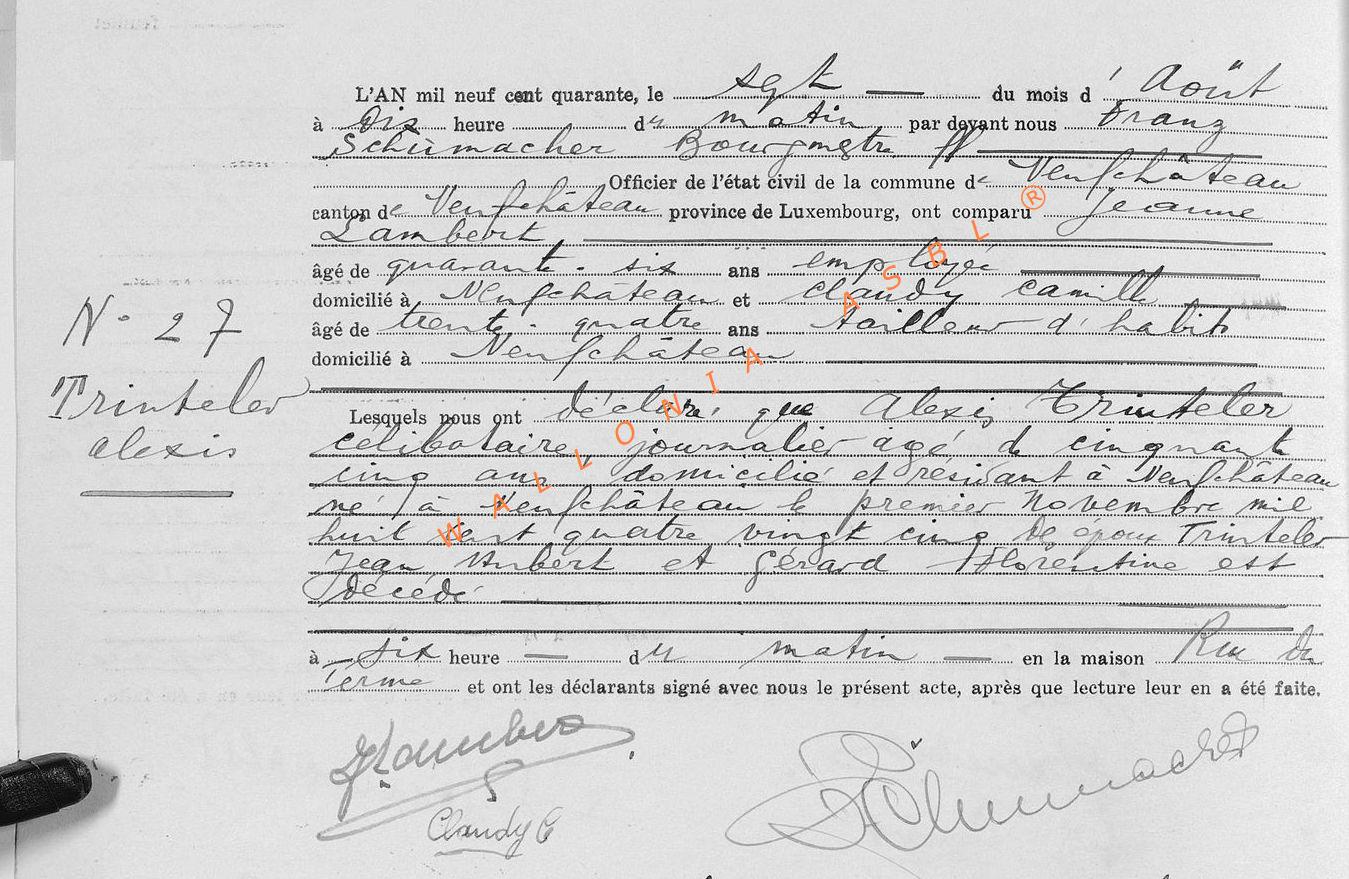 L'AN mil neuf cent quarante, le sept du mois d' Août
à dix heure du matin par devant nous Franz
Schumacher Bourgmestre ff
Officier de l'état civil de la commune de Neufchâteau
canton de Neufchâteau province de Luxembourg, ont comparu Jeanne
Lambert,
âgé de quarante-six ans employée
domicilié à Neufchâteau et Claudy Camille
âgé de trente-quatre ans tailleur d'habits
domicilié à Neufchâteau
N° 27
Trinteler
Alexis
Lesquels nous ont déclaré que Alexis Trinteler
célibataire, journalier âgé de cinquante
cinq ans domicilié et résidant à Neufchâteau
né à Neufchâteau le premier Novembre mil
huit cent quatre vingt cinq époux Trinteler
Jean Hubert et Gérard Florentine est
décédé
à six heure du matin en la maison Rue du
Terme et ont les déclarants signé avec nous le présent acte, après que lecture leur en a été faite.
JLambert
Claudy C
FSchumacher
WALLONIA ASBL ®